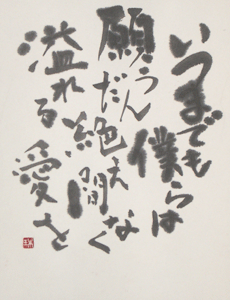 いつまでも
僕らは
願うんだ
絶え間なく
溢れる
愛を